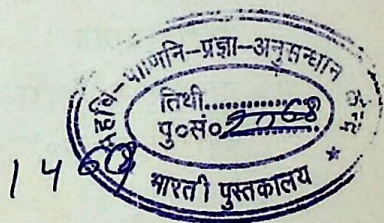 महर्षि-पाणिनि-प्रज्ञा-अनुसन्धान केन्द्र
तिथी..............
पु०सं० 2068
भारती पुस्तकालय